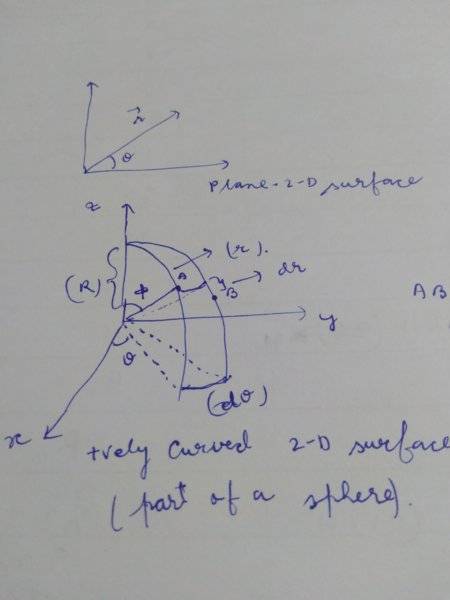 r
θ
Plane 2-D surface
z
(r).
A
dr
(R)
φ
B
AB
y
θ
(dθ)
x
+vely curved 2-D surface
(part of a sphere).